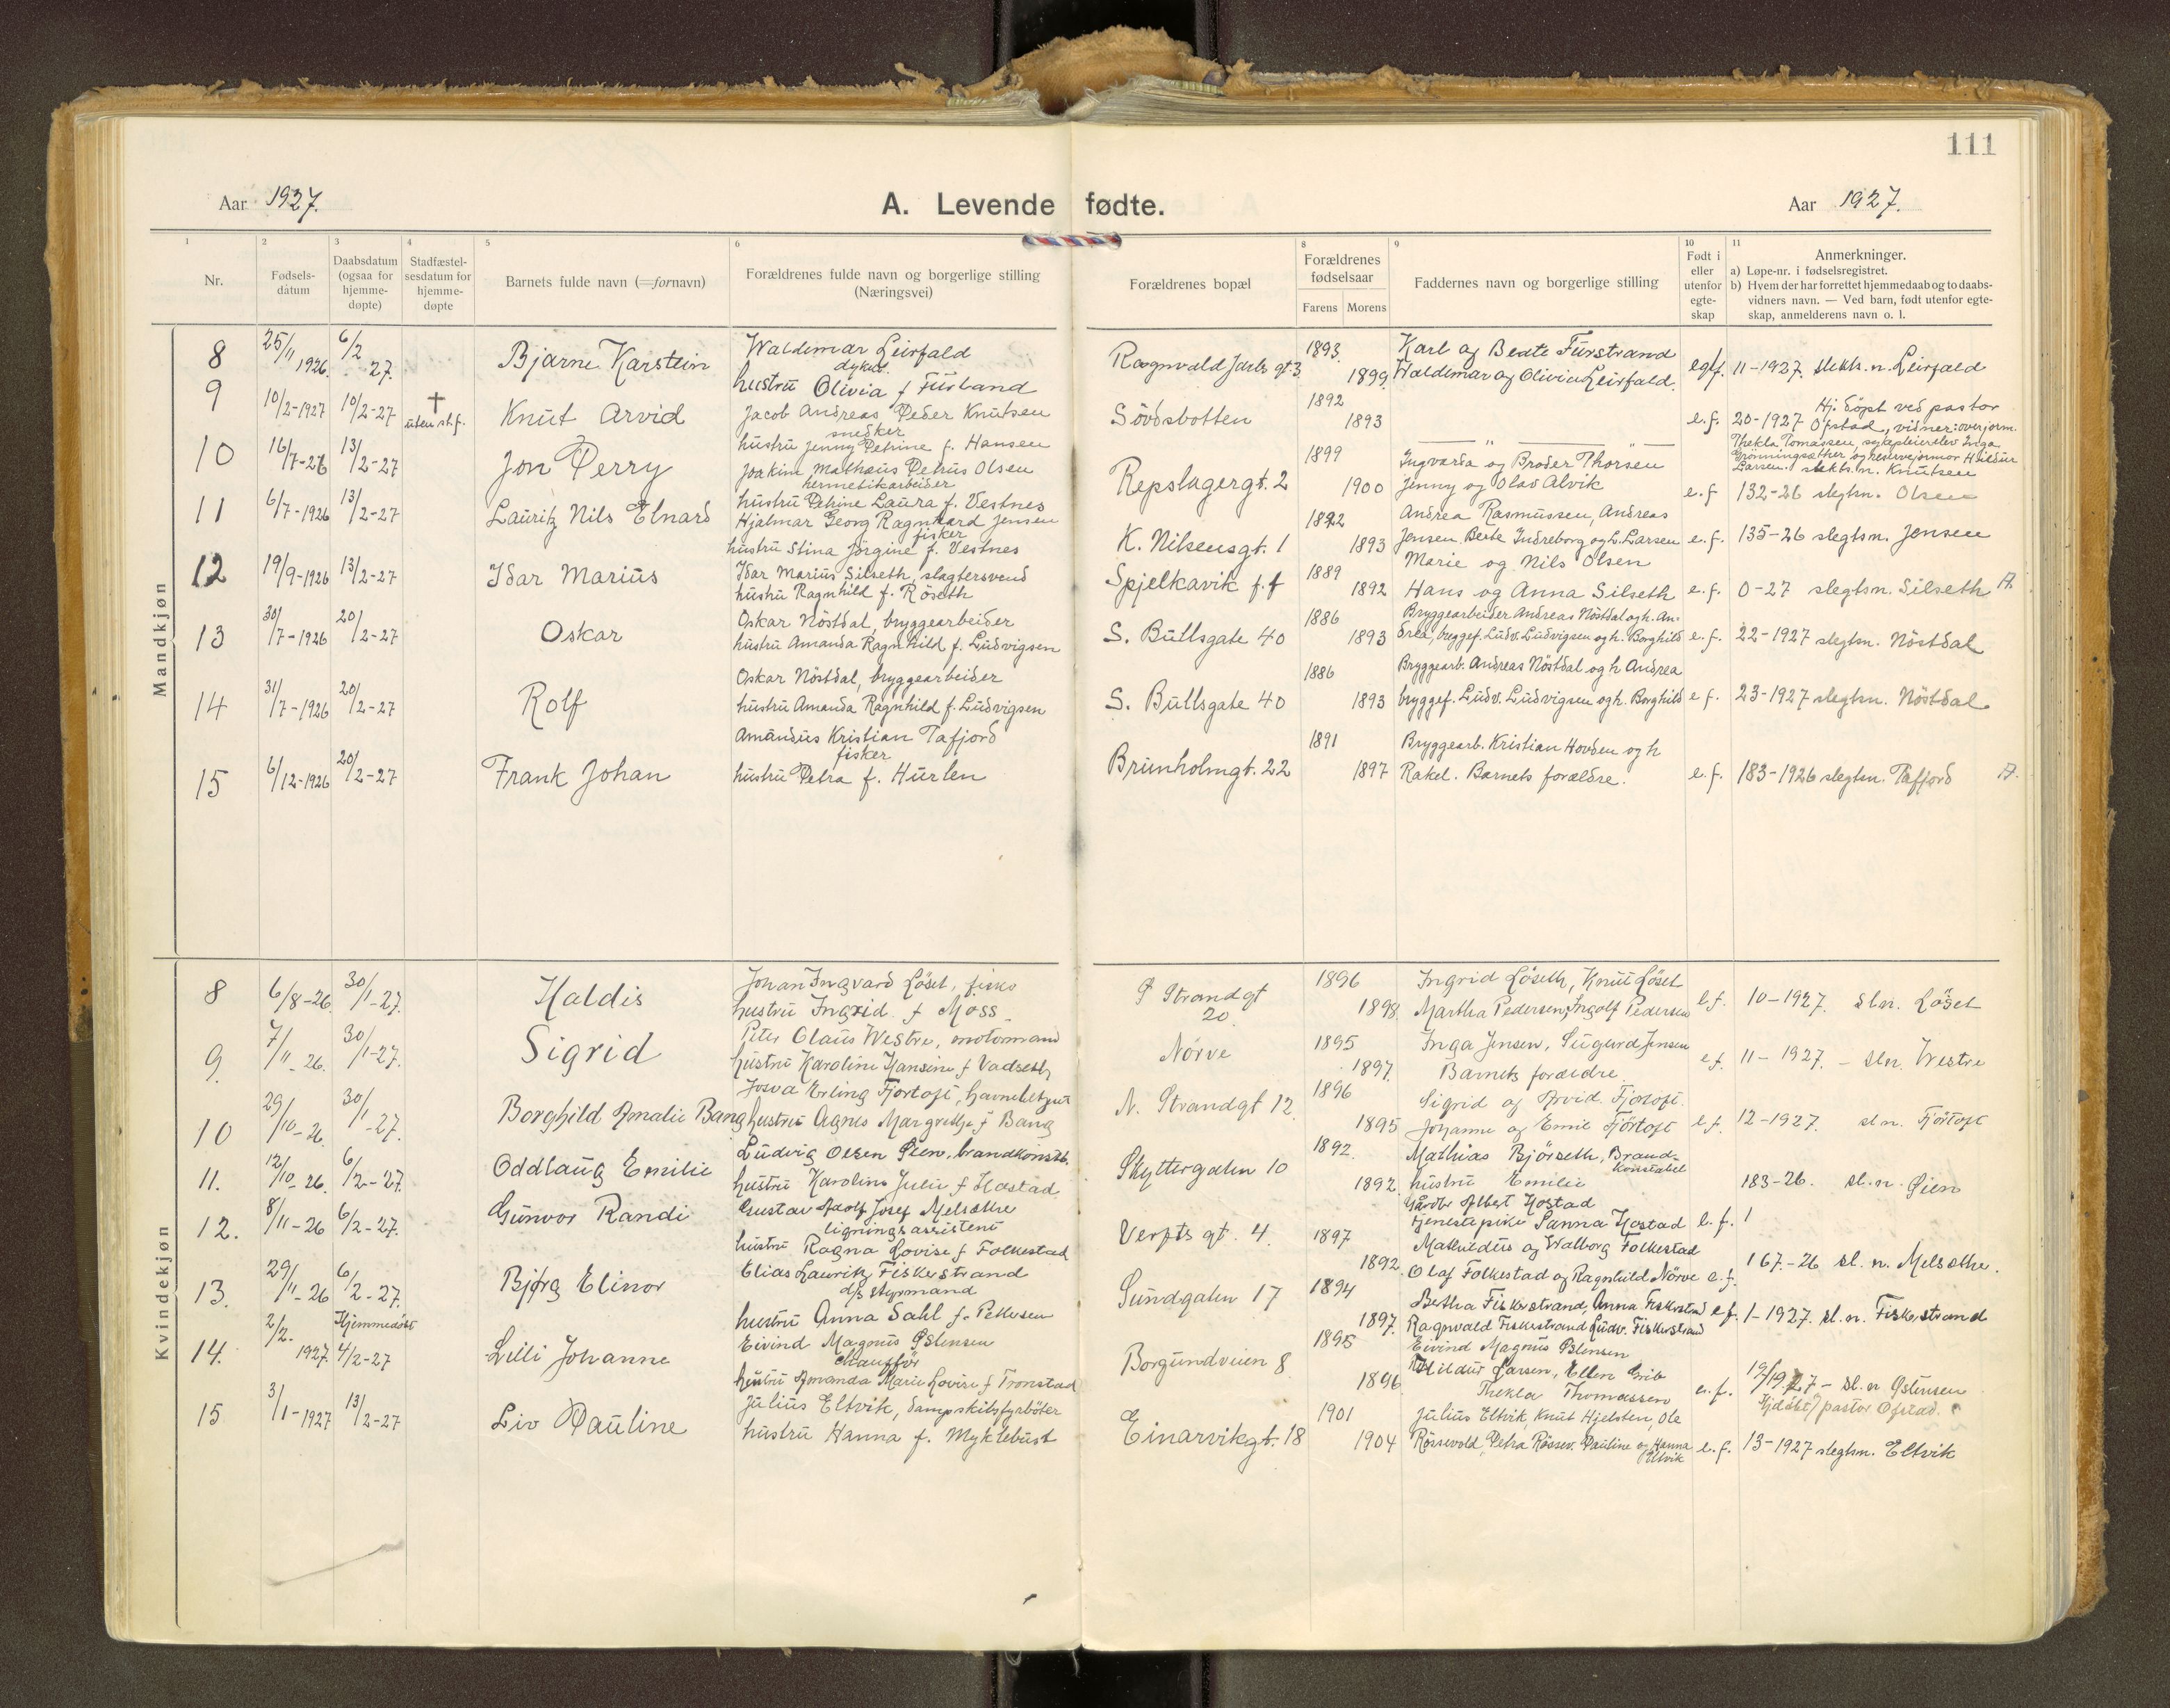 111
Aar 1927.
A. Levende fødte.
Aar 1927.
1 2 3 4 5 6 8 9 10 11
Nr.
Fødsels-
dátum
Daabsdatum
(ogsaa for
hjemme-
døpte)
Stadfæstel-
sesdatum for
hjemme-
døpte
Barnets fulde navn (=fornavn)
Forældrenes fulde navn og borgerlige stilling
(Næringsvei)
Forældrenes bopæl
Forældrenes
fødselsaar
Farens Morens
Faddernes navn og borgerlige stilling
Født i
eller
utenfor
egte-
skap
Anmerkninger.
a) Løpe-nr. i fødselsregistret.
b) Hvem der har forrettet hjemmedaab og to daabs-
vidners navn. — Ved barn, født utenfor egte-
skap, anmelderens navn o. l.
Mandkjøn
8 25/11 1926. 6/2 27. Bjarne Karstein
Waldemar Leirfald
dykker
hustru Olivia f Furland
Ragnvald Jarls gt 3
1893. 1899
Karl og Beate Furstrand
Waldemar og Olivia Leirfald.
egtf. 11-1927. slekts.n. Leirfald
9 10/2-1927 10/2-27 † uten st.f. Knut Arvid
Jacob Andreas Peder Knutsen
snedker
hustru Jenny Petrine f. Hansen
Sövdsbotten
1892 1893
e.f. 20-1927 Hj. döpt ved pastor
Ofstad, vidner: overjorm.
Thekla Tomassen, sykepleierelev Inga
Grönningsæther og reservejormor Hildur
Larsen. slekts.n. Knutsen
10 16/7-26 13/2-27 Jon Perry
Joakim Mathæus Petrus Olsen
hermetikarbeider
hustru Petrine Laura f. Vestnes
Repslagergt. 2
1899 1900
Ingvarda og Broder Thorsen
Jenny og Olav Alvik
e.f 132-26 slegtsn. Olsen
11 6/7-1926 13/2-27 Lauritz Nils Elnard
Hjalmar Georg Ragnvard Jensen
fisker
hustru Stina Jörgine f. Vestnes
K. Nilsensgt. 1
1892 1893
Andrea Rasmussen, Andreas
Jensen. Berte Indreborg og L. Larsen
Marie og Nils Olsen
e.f. 135-26 slegtsn. Jensen
12 19/9-1926 13/2-27 Idar Marius
Idar Marius Silseth, slagtersvend
hustru Ragnhild f. Röseth
Spjelkavik f.f
1889 1892
Hans og Anna Silseth
e.f. 0-27 slegtsn. Silseth A.
13 30/7-1926 20/2-27 Oskar
Oskar Nöstdal, bryggearbeider
hustru Amanda Ragnhild f. Ludvigsen
S. Bullsgate 40
1886 1893
Bryggearbeider Andreas Nöstdal og h. An-
drea, bryggef. Ludv. Ludvigsen og h. Borghild
e.f. 22-1927 slegtsn. Nöstdal
14 31/7-1926 20/2-27 Rolf
Oskar Nöstdal, bryggearbeider
hustru Amanda Ragnhild f. Ludvigsen
S. Bullsgate 40
1886 1893
Bryggearb. Andreas Nöstdal og h Andrea
bryggef. Ludv. Ludvigsen og h. Borghild
e f. 23-1927 slegtsn. Nöstdal.
15 6/12-1926 20/2-27 Frank Johan
Amandus Kristian Tafjord
fisker
hustru Petra f. Hurlen
Brunholmgt. 22
1891 1897
Bryggearb. Kristian Hovden og h
Rakel. Barnets forældre.
e.f. 183-1926 slegtsn. Tafjord A.
Kvindekjøn
8 6/8-26 30/1-27. Haldis
Johan Ingvard Löset, fisker
hustru Ingrid f Moss
Ø Strandgt
20.
1896 1898
Ingrid Löseth, Knut Löset
Martha Pedersen, Ingolf Pedersen
e.f. 10-1927. sl.n. Löset
9. 7/11-26. 30/1-27. Sigrid
Peter Olaus Westre, motormand
hustru Karoline Hansine f Vadseth
Nörve
1895 1897.
Inga Jensen, Sigurd Jensen
Barnets foreldre.
e.f. 11-1927. - sl.n. Westre
10 29/10-26 30/1-27. Borghild Amalie Bang
Josva Erling Fjörtoft, havnebetjent
hustru Agnes Margrethe f Bang
N. Strandgt 12.
1896 1895
Sigrid og Arvid Fjörtoft.
Johanne og Emil Fjörtoft
e.f. 12-1927. sl.n. Fjörtoft
11. 12/10-26. 6/2-27. Oddlaug Emilie
Ludvig Olsen Øien, brandkonstb.
hustru Karoline Julie f Hostad
Skyttergaten 10
1892. 1892.
Mathias Björseth, Brand-
konstabel
hustru Emilie
Gårdbr Albert Hostad
tjenestepike Sanna Hostad e.f.
183-26. sl.n. Øien
12. 8/11-26 6/2-27. Gunvor Randi
Gustav Adolf Josef Melsæthre
ligningsassistent
hustru Ragna Lovise f Folkestad
Verfts gt. 4.
1897 1892
Mathildus og Walborg Folkestad
Olaf Folkestad og Ragnhild Nörve e.f.
167.-26 sl. n. Melsæthre.
13. 29/11-26 6/2-27. Bjørg Elinor
Elias Lauritz Fiskerstrand
d/s styrmand
hustru Anna Sahl f. Pettersen
Sundgaten 17
1894 1897.
Bertha Fiskerstrand, Anna Fiskerstrand
Ragnvald Fiskerstrand Ludv. Fiskerstrand
e.f. 1-1927. sl.n. Fiskerstrand
14. 2/2. 1927. Hjemmedöbt 4/2-27 Lilli Johanne
Eivind Magnus Østensen
chauffør
hustru Amanda Marie Lovise f Tronstad
Borgundveien 8
1895 1896
Eivind Magnus Østensen
Hildur Larsen, Ellen Grib
Thekla Thomassen
e.f. 19/1927 - sl.n Østensen
Hjdöbt / pastor Ofstad.
15 3/1-1927 13/2-27 Liv Pauline
Julius Eltvik, dampskibsfyrböter
hustru Hanna f. Myklebust
Einarvikgt. 18
1901 1904
Julius Eltvik, Knut Hjelsten, Ole
Rössevold, Petra Rössev. Pauline og Hanna
Eltvik
e.f. 13-1927 slegtsn. Eltvik